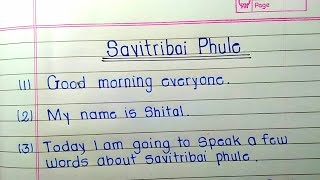 Page
Savitribai Phule
(1) Good morning everyone.
(2) My name is Shital.
(3) Today I am going to speak a few
words about savitribai phule.